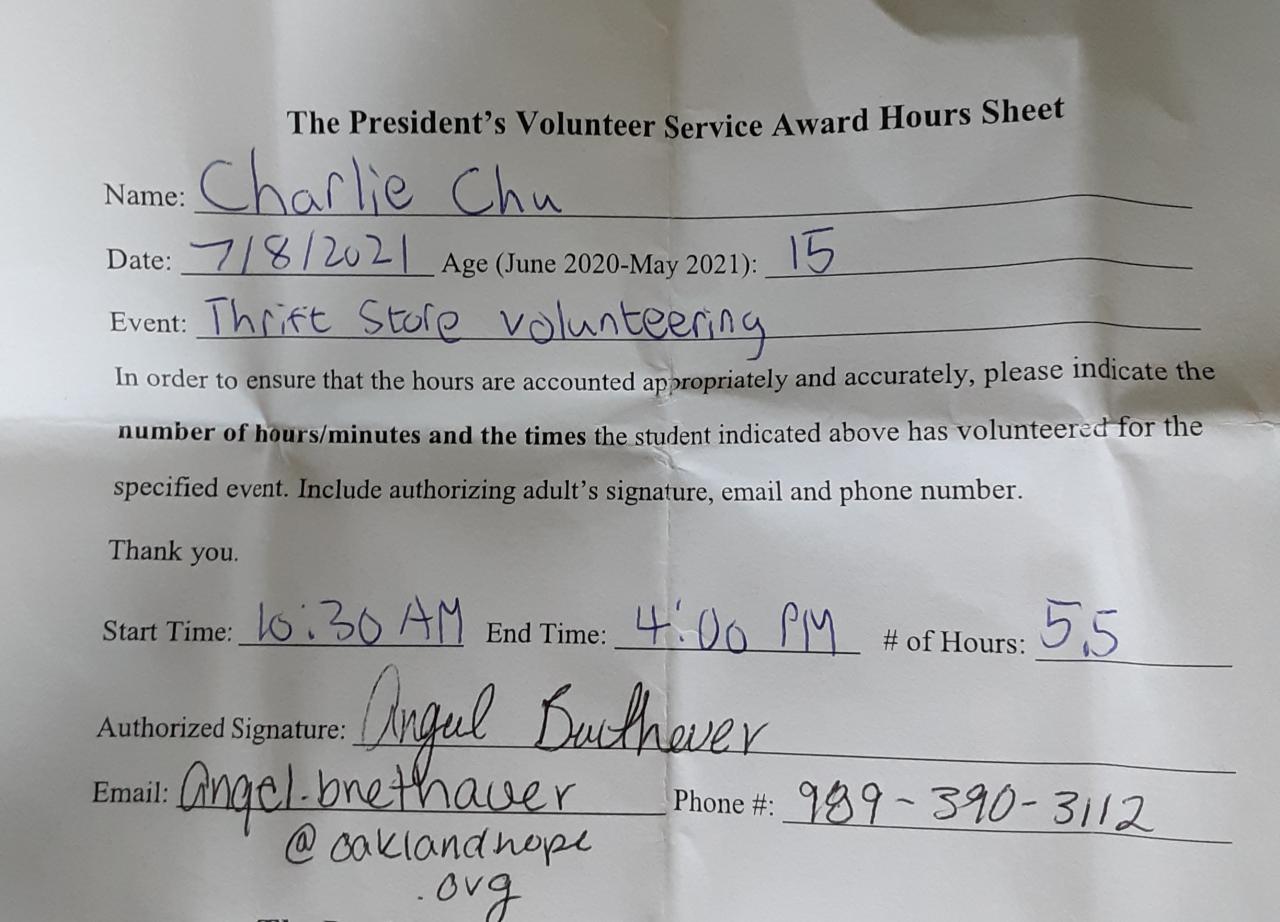 The President's Volunteer Service Award Hours Sheet
Name: Charlie Chu
Date: 7/8/2021 Age (June 2020-May 2021): 15
Event: Thrift Store volunteering
In order to ensure that the hours are accounted appropriately and accurately, please indicate the
number of hours/minutes and the times the student indicated above has volunteered for the
specified event. Include authorizing adult's signature, email and phone number.
Thank you.
Start Time: 10:30 AM End Time: 4:00 PM # of Hours: 5.5
Authorized Signature: Angel
Email: angel.brethauer Phone #: 989-390-3112
@oaklandhope
.org